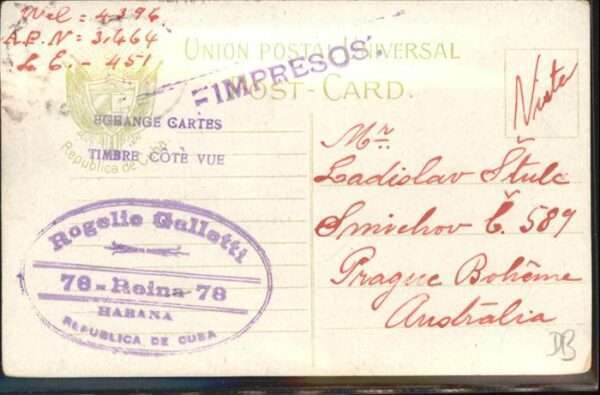 Wel = 4396.
A.P.N = 3,464
L.C. - 451
UNION POSTAL UNIVERSAL
=IMPRESOS=
POST-CARD.
ECHANGE CARTES
TIMBRE CÔTÉ VUE
Republica de Cuba
Rogelio Galletti
78-Reina-78
HABANA
REPUBLICA DE CUBA
Vista
Mr.
Ladislav Štulc
Smichov Č. 589
Prague Bohême
Austrália
DB